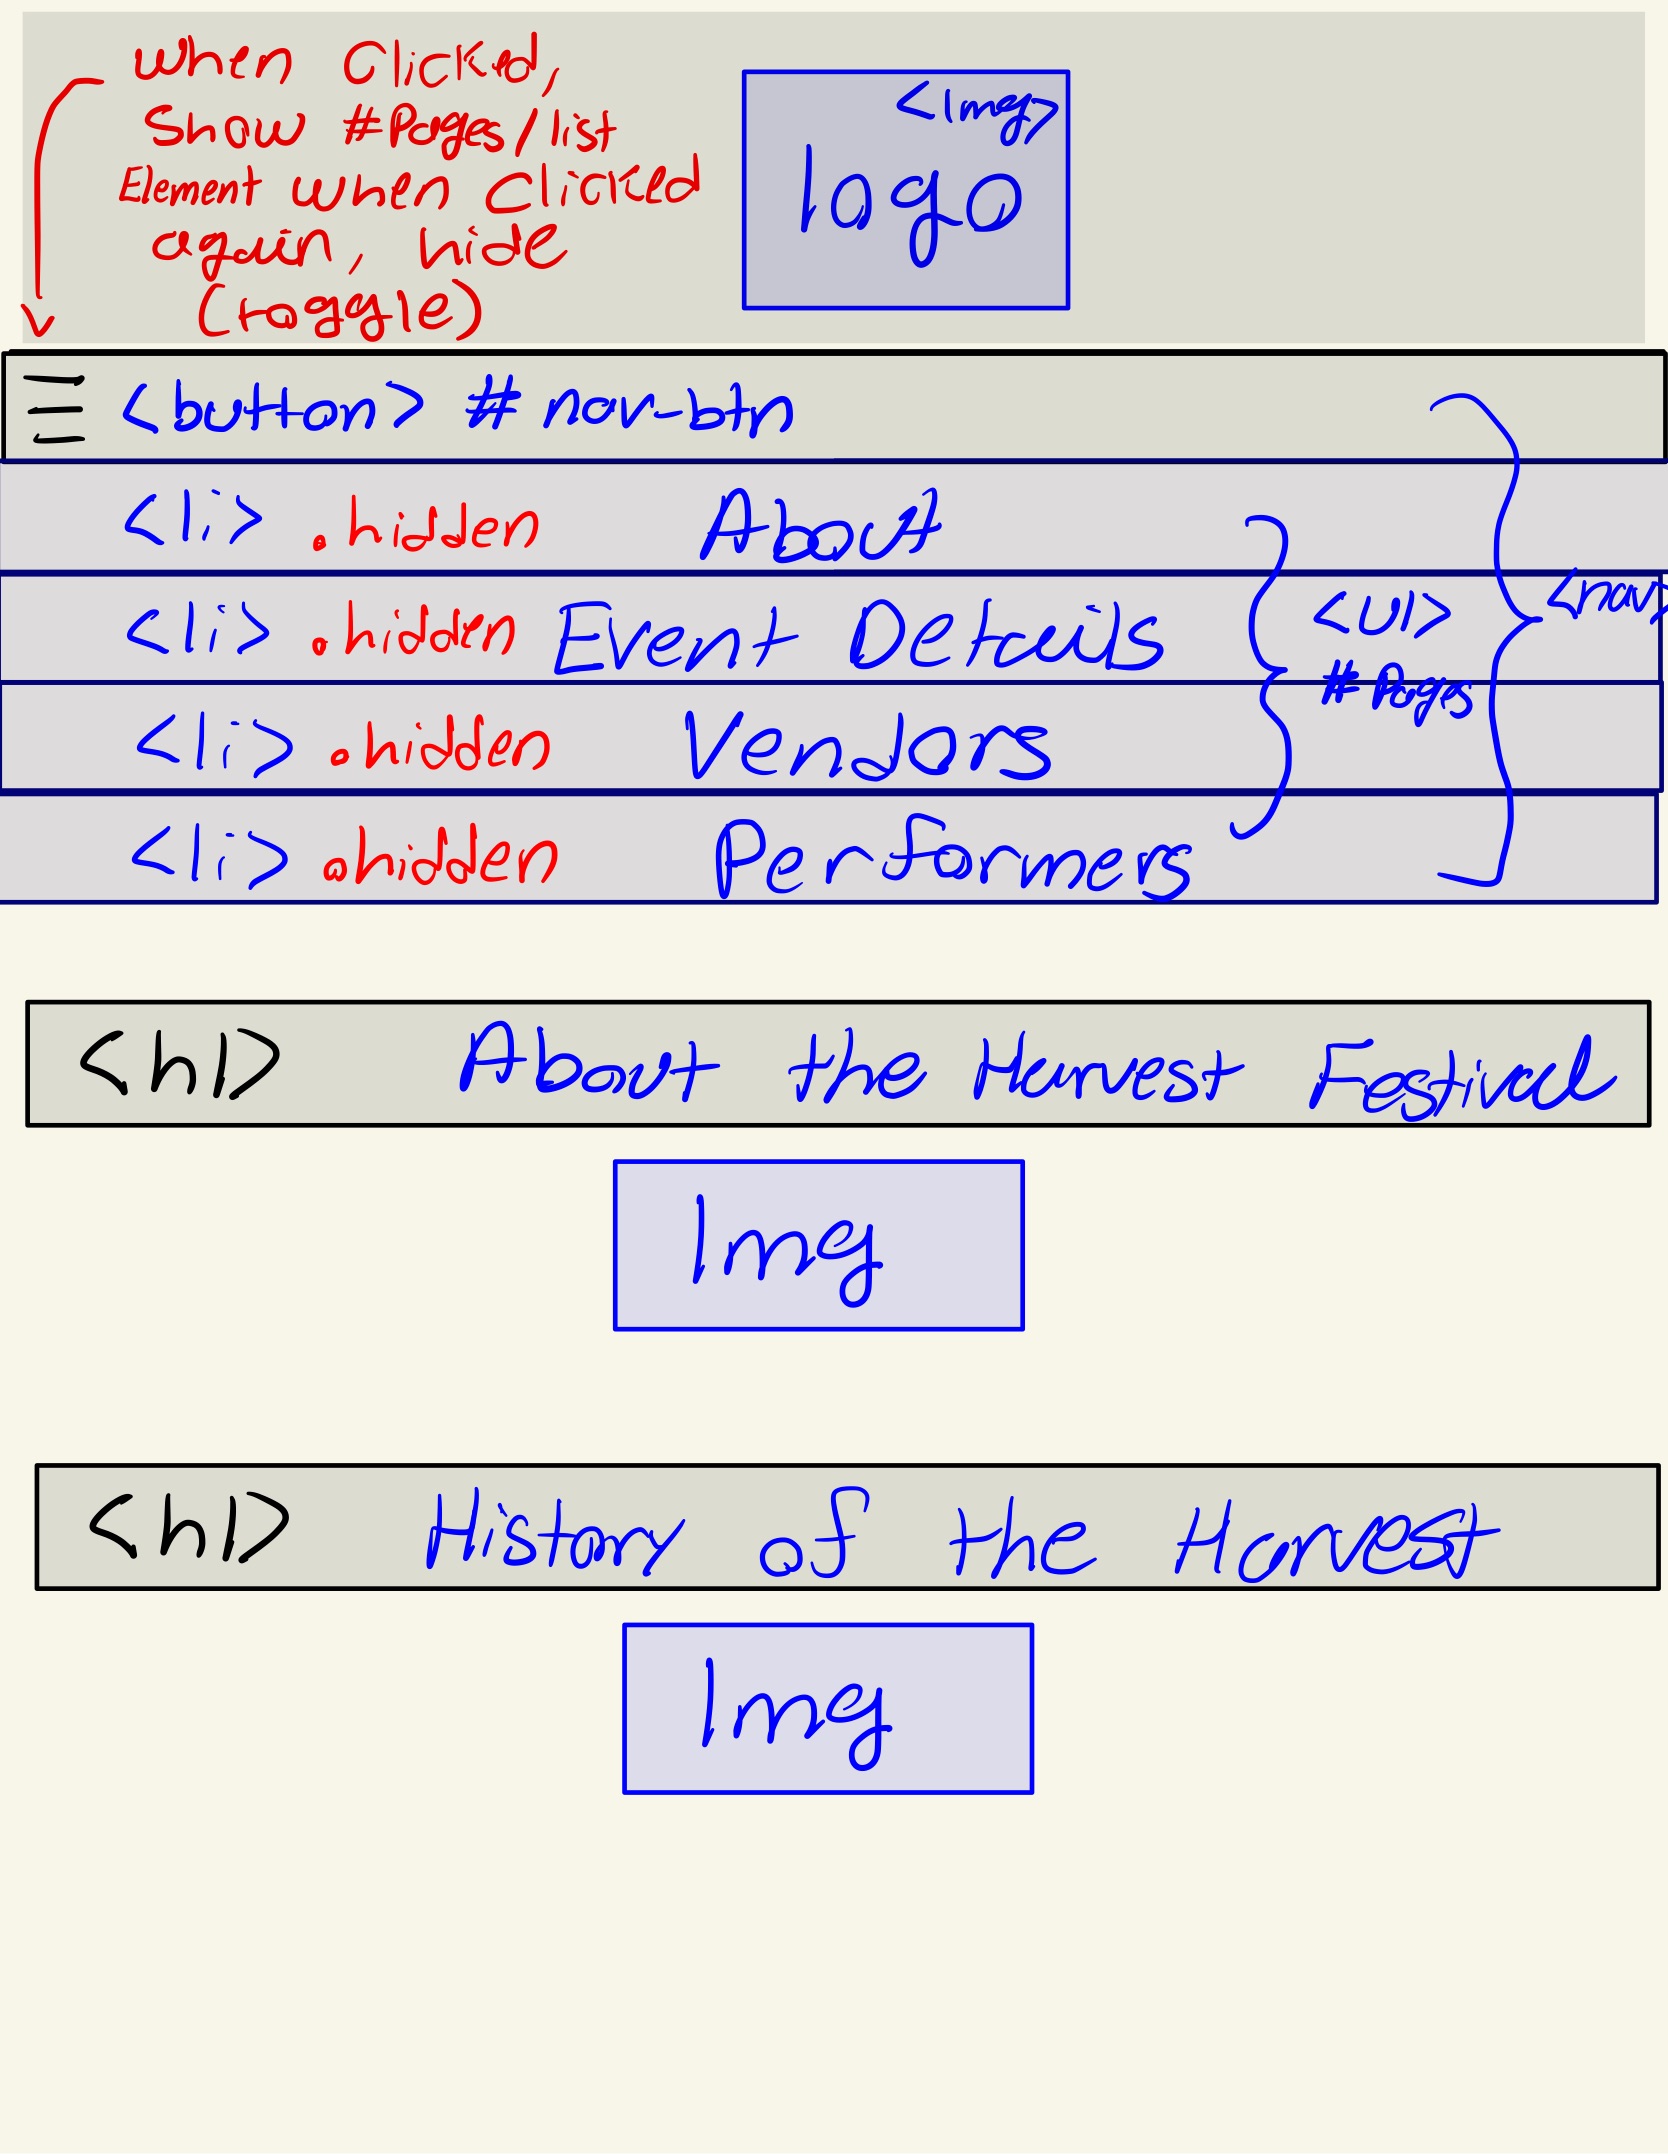 When Clicked,
Show #Pages/list
Element when clicked
again, hide
(toggle)
<Img>
logo
<button> # nav-btn
<li> .hidden About
<li> .hidden Event Details
<li> .hidden Vendors
<li> .hidden Performers
<ul>
# Pages
<nav>
<h1> About the Harvest Festival
Img
<h1> History of the Harvest
Img